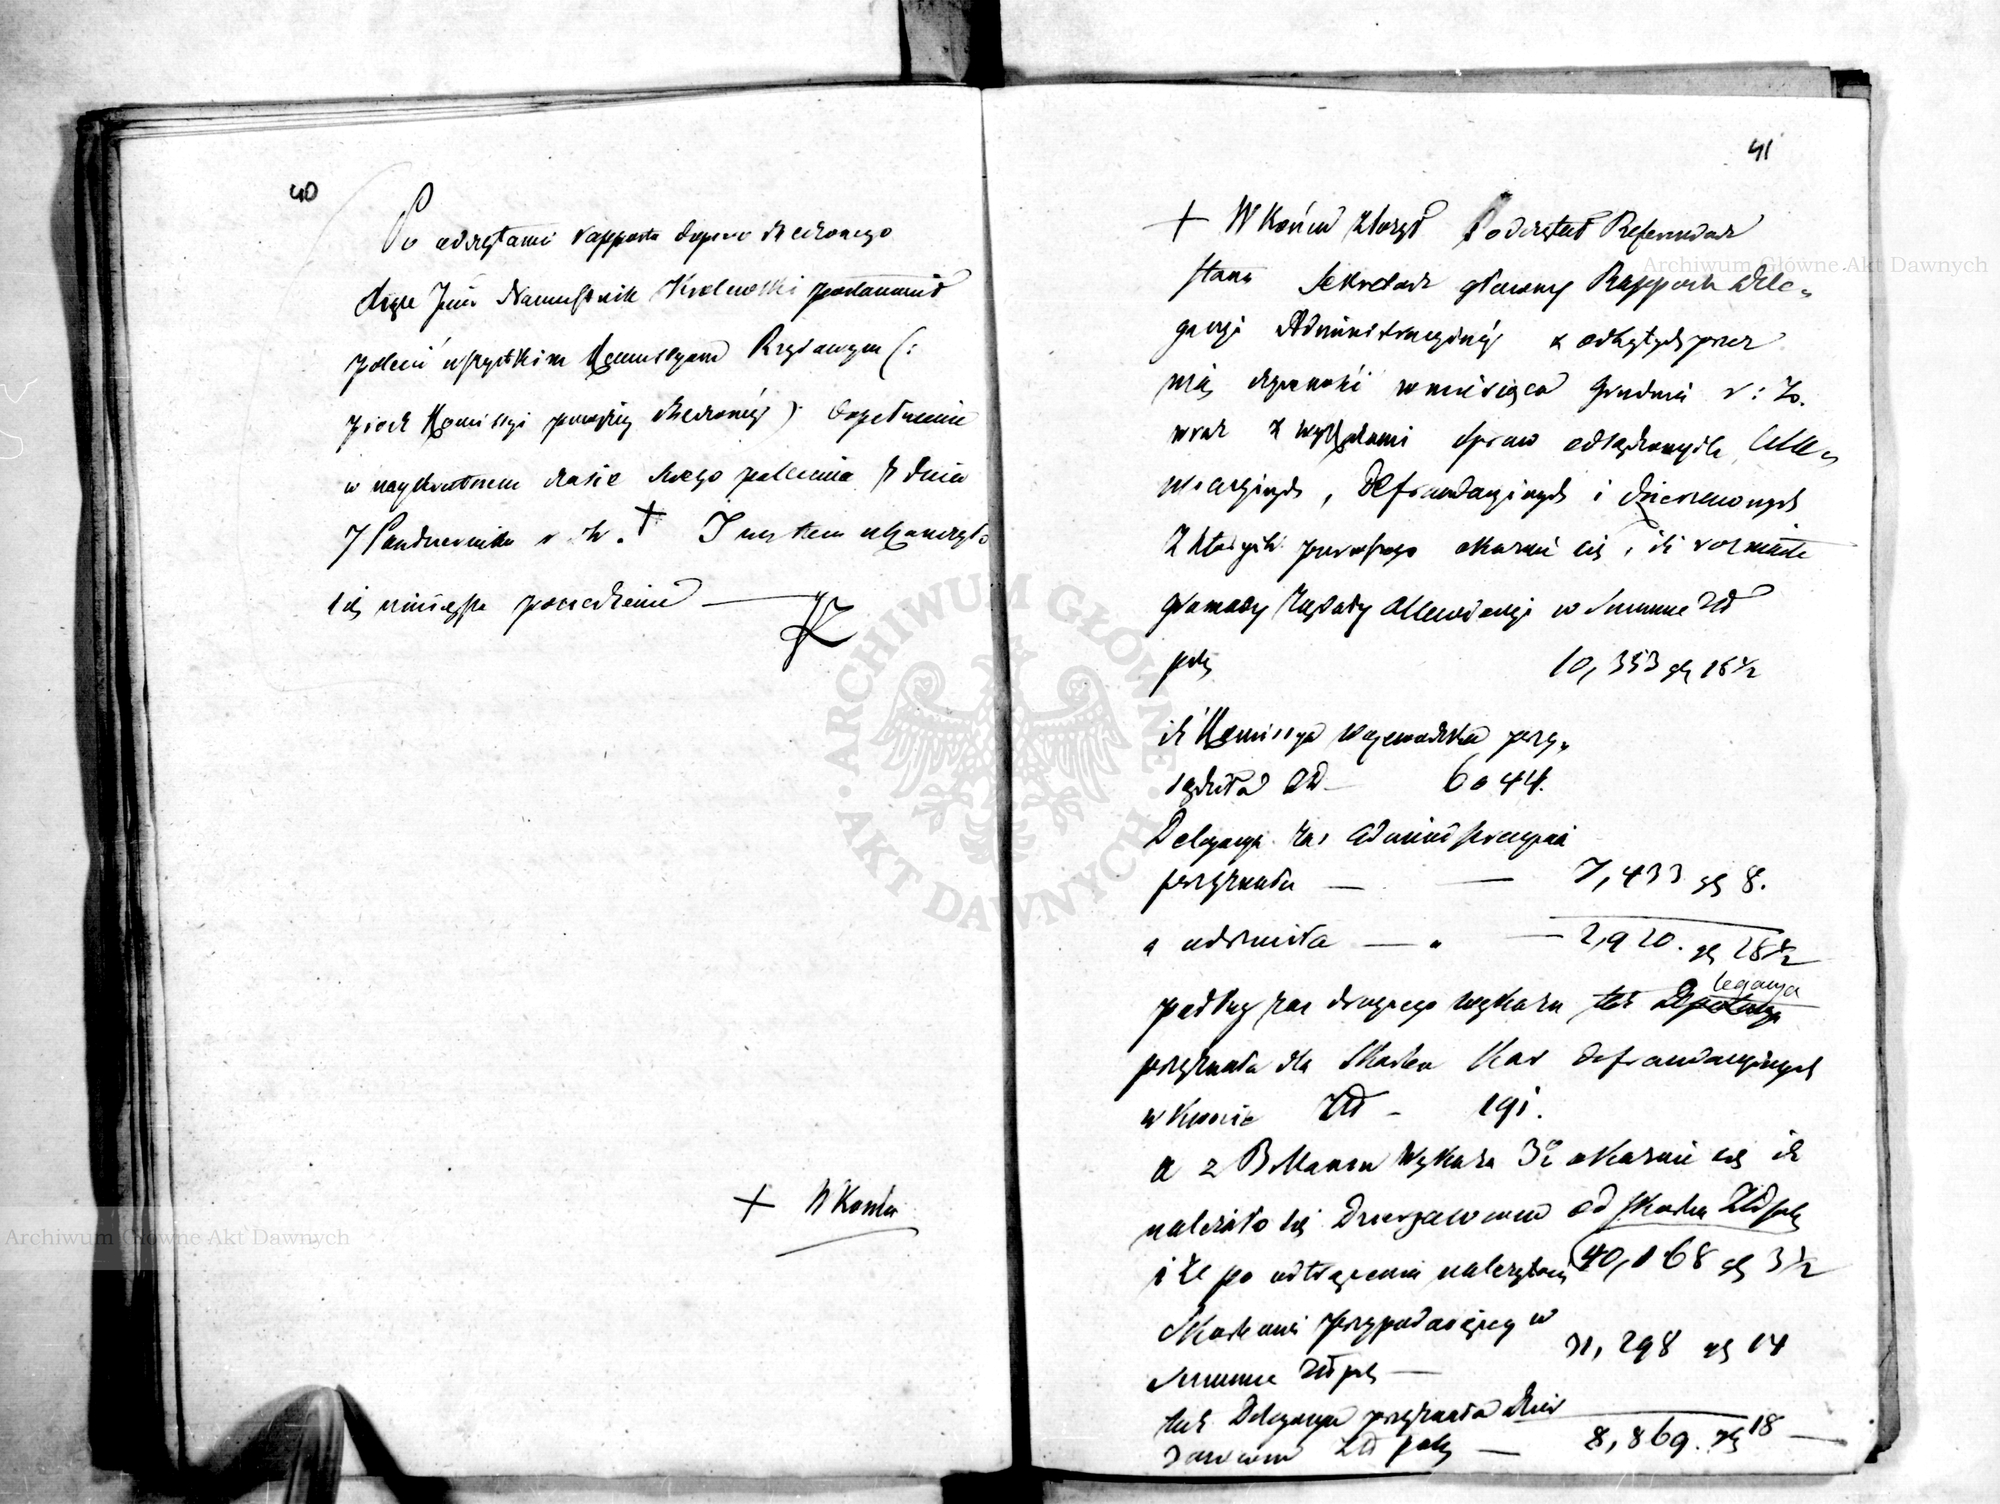 40
Po odczytaniu rapportu dopiero rzeczonego
Xiąże Jmć Namiestnik Królewski postanowił
polecić wszystkim Kommissyom Rządowym (:
prócz Kommissyi powyżey rzeczoney :) dopełnienie
w naykrótszem czasie swego polecenia z dnia
7 Października r. b. + I na tem ukończyło
się ninieysze posiedzenie —
+ W Końcu
41
+ W Końcu złożył Podczętał Referendarz
Stanu Sekretarz główny Rapport Dele-
gacyi Administracyiney z odbytych przez
nię czynności w miesiącu Grudniu r: z.
wraz z wykazami spraw osądzonych, Alle-
wiacyinych, Defraudacyinych i dzierżawnych
z których pierwszego okazuie się, iż rozmaite
gromady żądały Allewiacyi w Summie Zł
pol. 10,353 gr 16 ½
iż Kommissya Woiewódzka przy-
sądziła Zł — 6044.
Delegacya zaś Administracyina
przyznała — — 7,433 gr 8.
a odmówiła — " — 2,920. gr 28 ½
podług zaś drugiego wykazu też Delegacya
przyznała dla Skarbu Kar defraudacyinych
w Kwocie Zł — 191.
a z Bilansu Wykazu 3o okazuie się iż
należało się Dzierżawcom od Skarbu Zł pol.
40,168 gr 3 ½
i że po odtrąceniu należytości
Skarbowi przypadaiącey w
Summie Zł pol. — 31,298 gr 14
taż Delegacya przyznała Dzier
żawcom Zł pol. — 8,869. gr 18 —